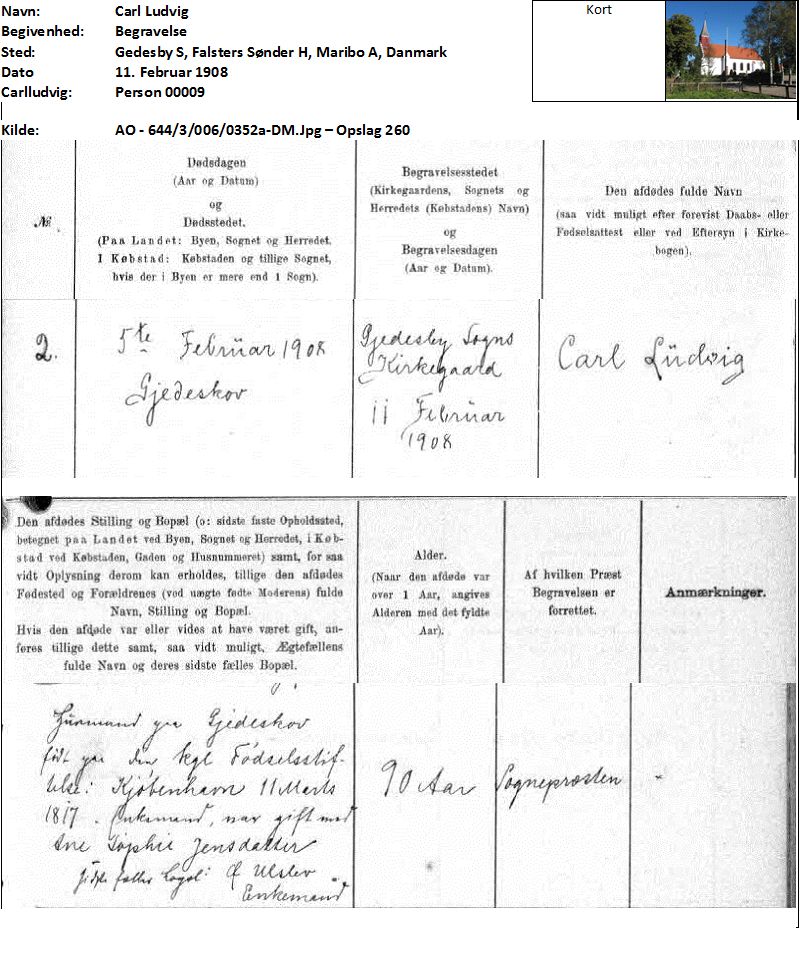 Navn: Carl Ludvig
Begivenhed: Begravelse
Sted: Gedesby S, Falsters Sønder H, Maribo A, Danmark
Dato 11. Februar 1908
Carlludvig: Person 00009
Kort
Kilde: AO - 644/3/006/0352a-DM.Jpg – Opslag 260
№
Dødsdagen
(Aar og Datum)
og
Dødsstedet.
(Paa Landet: Byen, Sognet og Herredet.
I Købstad: Købstaden og tillige Sognet,
hvis der i Byen er mere end 1 Sogn).
Begravelsesstedet
(Kirkegaardens, Sognets og
Herredets (Købstadens) Navn)
og
Begravelsesdagen
(Aar og Datum).
Den afdødes fulde Navn
(saa vidt muligt efter forevist Daabs- eller
Fødselsattest eller ved Eftersyn i Kirke-
bogen).
2.
5te Februar 1908
Gjedeskov
Gjedesby Sogns
Kirkegaard
11 Februar
1908
Carl Ludvig
Den afdødes Stilling og Bopæl (ɔ: sidste faste Opholdssted,
betegnet paa Landet ved Byen, Sognet og Herredet, i Køb-
stad ved Købstaden, Gaden og Husnummeret) samt, for saa
vidt Oplysning derom kan erholdes, tillige den afdødes
Fødested og Forældrenes (ved uægte fødte Moderens) fulde
Navn, Stilling og Bopæl.
Hvis den afdøde var eller vides at have været gift, an-
føres tillige dette samt, saa vidt muligt, Ægtefællens
fulde Navn og deres sidste fælles Bopæl.
Alder.
(Naar den afdøde var
over 1 Aar, angives
Alderen med det fyldte
Aar).
Af hvilken Præst
Begravelsen er
forrettet.
Anmærkninger.
Husmand paa Gjedeskov
født paa den kgl Fødselsstif-
telse i Kjøbenhavn 11 Marts
1817. Enkemand, var gift med
Ane Sophie Jensdatter
sidste fælles Bopæl: Ulslev
Enkemand
90 Aar
Sognepræsten